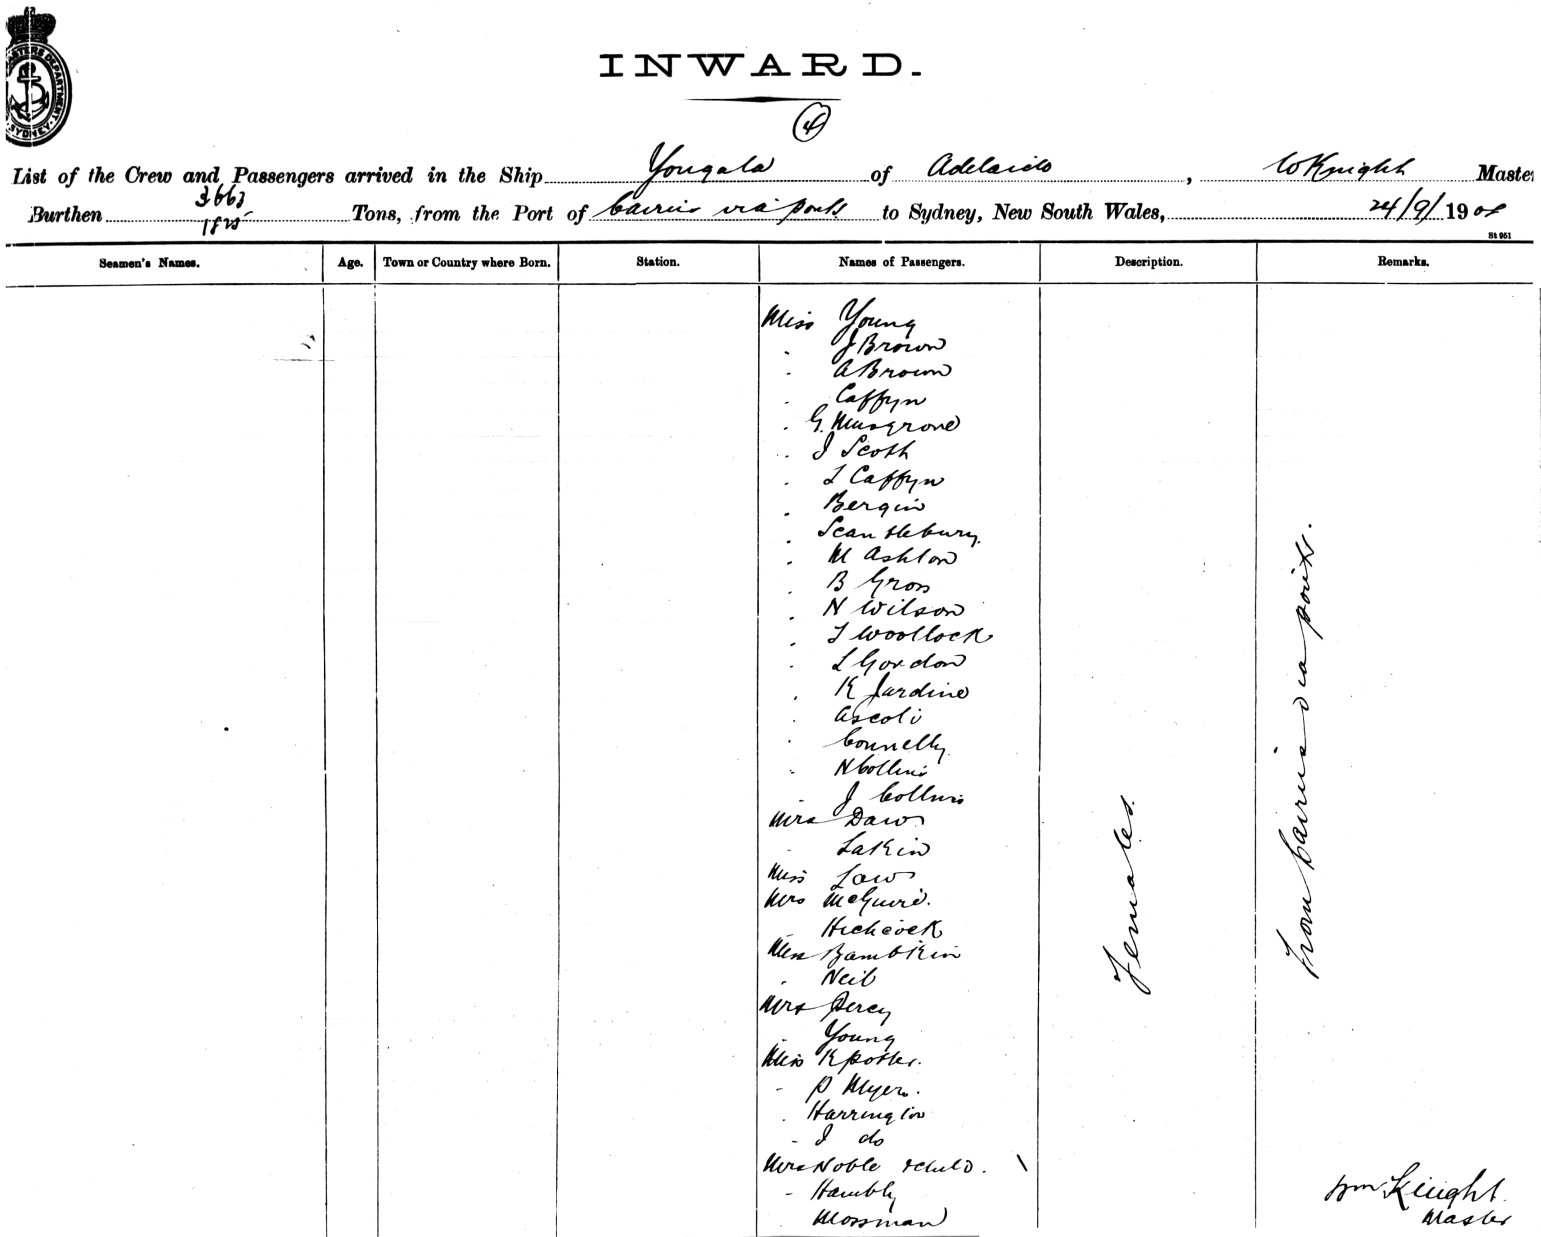 MASTERS DEPARTMENT. SYDNEY.
INWARD.
4
List of the Crew and Passengers arrived in the Ship Yongala of Adelaide, W Knight Master
Burthen 3663 1825 Tons, from the Port of Cairns via ports to Sydney, New South Wales, 24/9/1908
St 961
Seamen's Names. Age. Town or Country where Born. Station. Names of Passengers. Description. Remarks.
Miss Young
" J Brown
" A Brown
" Caffyn
" G. Musgrove
" J Scott
" L Caffyn
" Bergin
" Scantlebury
" M Ashton
" B Gross
" N Wilson
" T Woollock
" L Gordon
" K Jardine
" Ascoli
" Connelly
" N Collins
" J Collins
Mrs Daw
" Lakin
Miss Law
Mrs McGuire.
" Hichcock
Miss
" Neil
Mrs Percy
" Young
Miss K Potter.
" P Myers.
" Harrington
" I do
Mrs Noble & child. \
" Hambly
" Mossman
Females.
From Cairns via ports.
Wm Knight.
Master